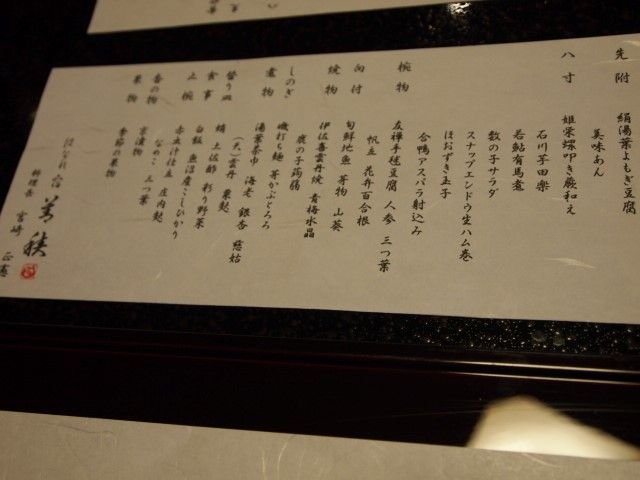 先附 絹湯葉よもぎ豆腐
美味あん
八寸 姫栄螺叩き蕨和え
石川芋田楽
若鮎有馬煮
数の子サラダ
スナップエンドウ生ハム巻
ほおずき玉子
合鴨アスパラ射込み
椀物 友禅手毬豆腐 人参 三つ葉
帆立 花弁百合根
向付 旬鮮地魚 芽物 山葵
焼物 伊佐喜雲丹焼 青梅水晶
鹿の子蒟蒻
しのぎ 磯打ち麺 芽かぶとろろ
煮物 湯葉茶巾 海老 銀杏 慈姑
(天)雲丹 粟麩
替り皿 蛸 土佐酢 彩り野菜
食事 白飯 魚沼産こしひかり
止椀 赤玉汁仕立 庄内麩
なめこ 三つ葉
香の物 京漬物
果物 季節の果物
はなれ
料理長 宮崎 正憲